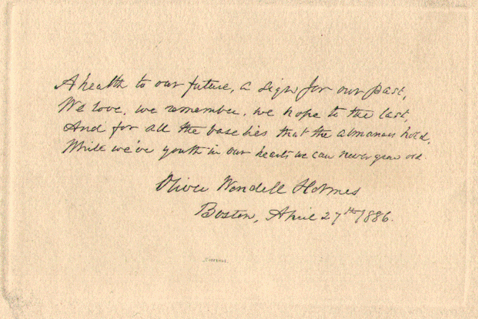 A health to our future, a sigh for our past,
We love, we remember, we hope to the last,
And for all the base lies that the almanacs hold,
While we've youth in our hearts we can never grow old.
Oliver Wendell Holmes
Boston, April 27th 1886.